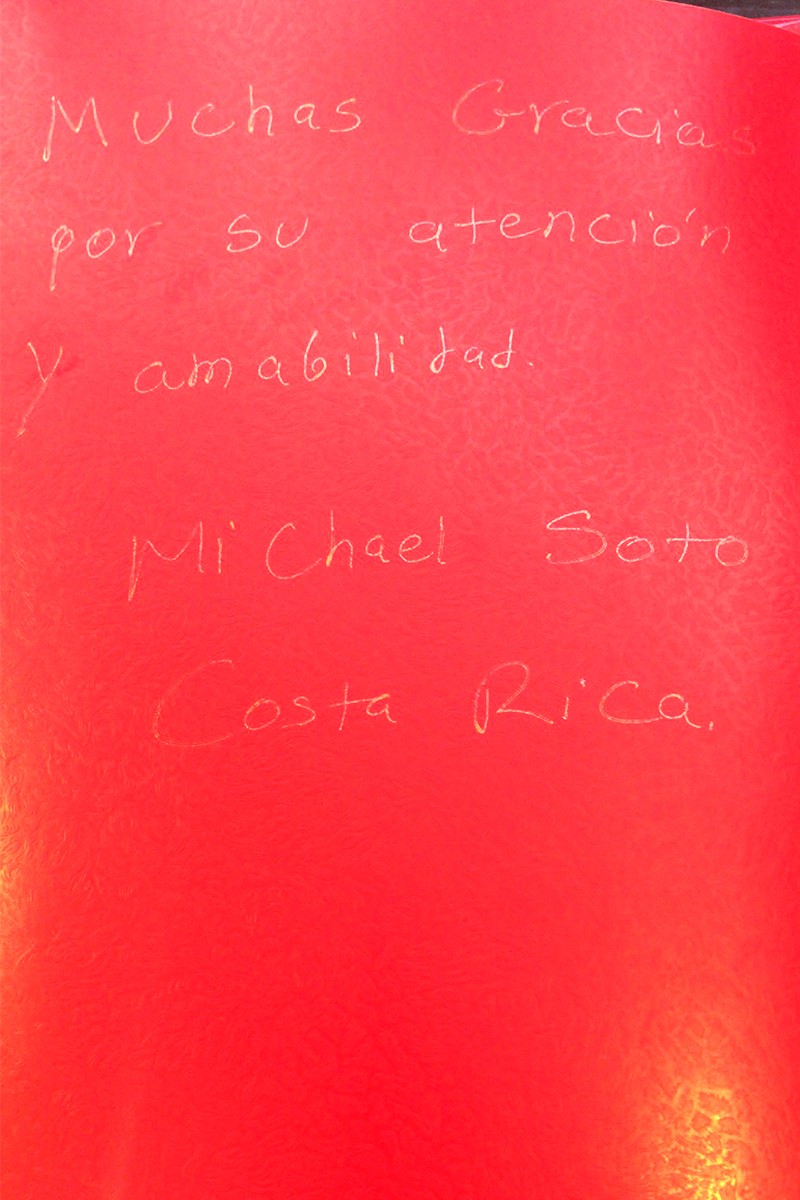 Muchas Gracias
por su atención
y amabilidad.
Michael Soto
Costa Rica.